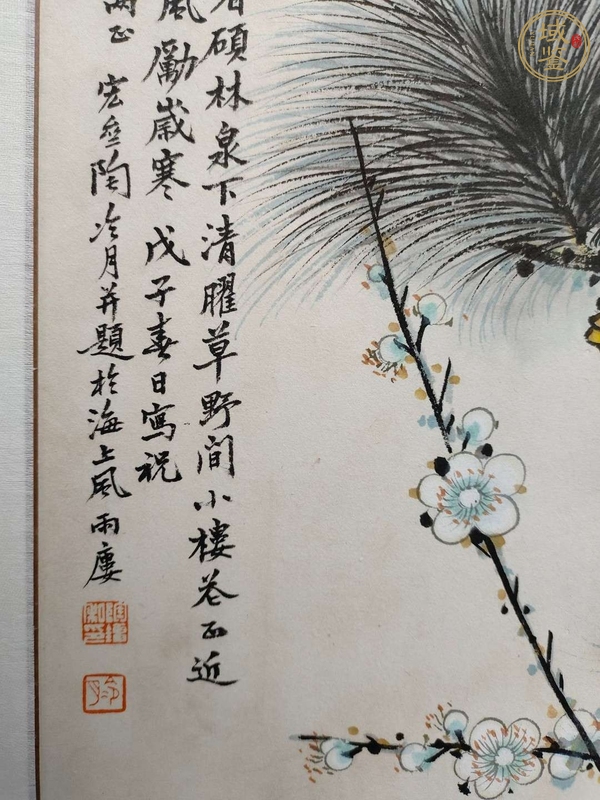 碩林泉下清曜草野間小樓近
風勵歲寒 戊子春日寫祝
正 宏陶冷月并題於海上風雨廔
冷月